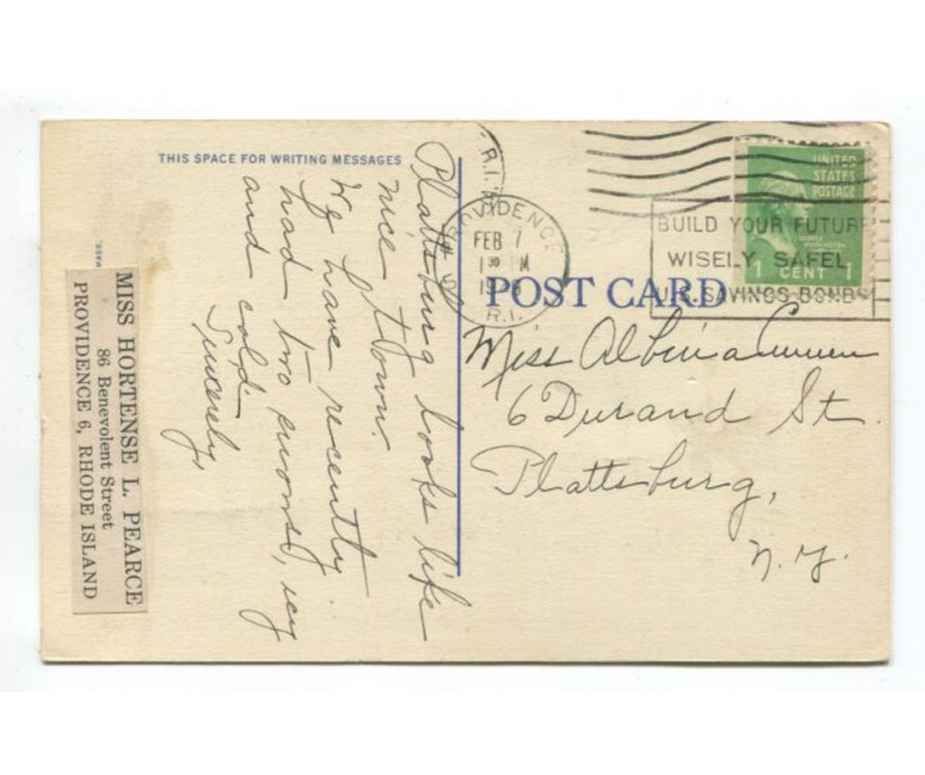 THIS SPACE FOR WRITING MESSAGES
Plattsburg looks like
nice town.
We have recently
had two snows, icy
and cold.
Sincerely,
MISS HORTENSE L. PEARCE
86 Benevolent Street
PROVIDENCE 6, RHODE ISLAND
R.I.
PROVIDENCE
FEB 7
1 30 M
R.I.
UNITED
STATES
POSTAGE
1 CENT 1
BUILD YOUR FUTURE
WISELY SAFEL
U.S. SAVINGS BONDS
POST CARD
Miss Albina
6 Durand St.
Plattsburg,
N.Y.